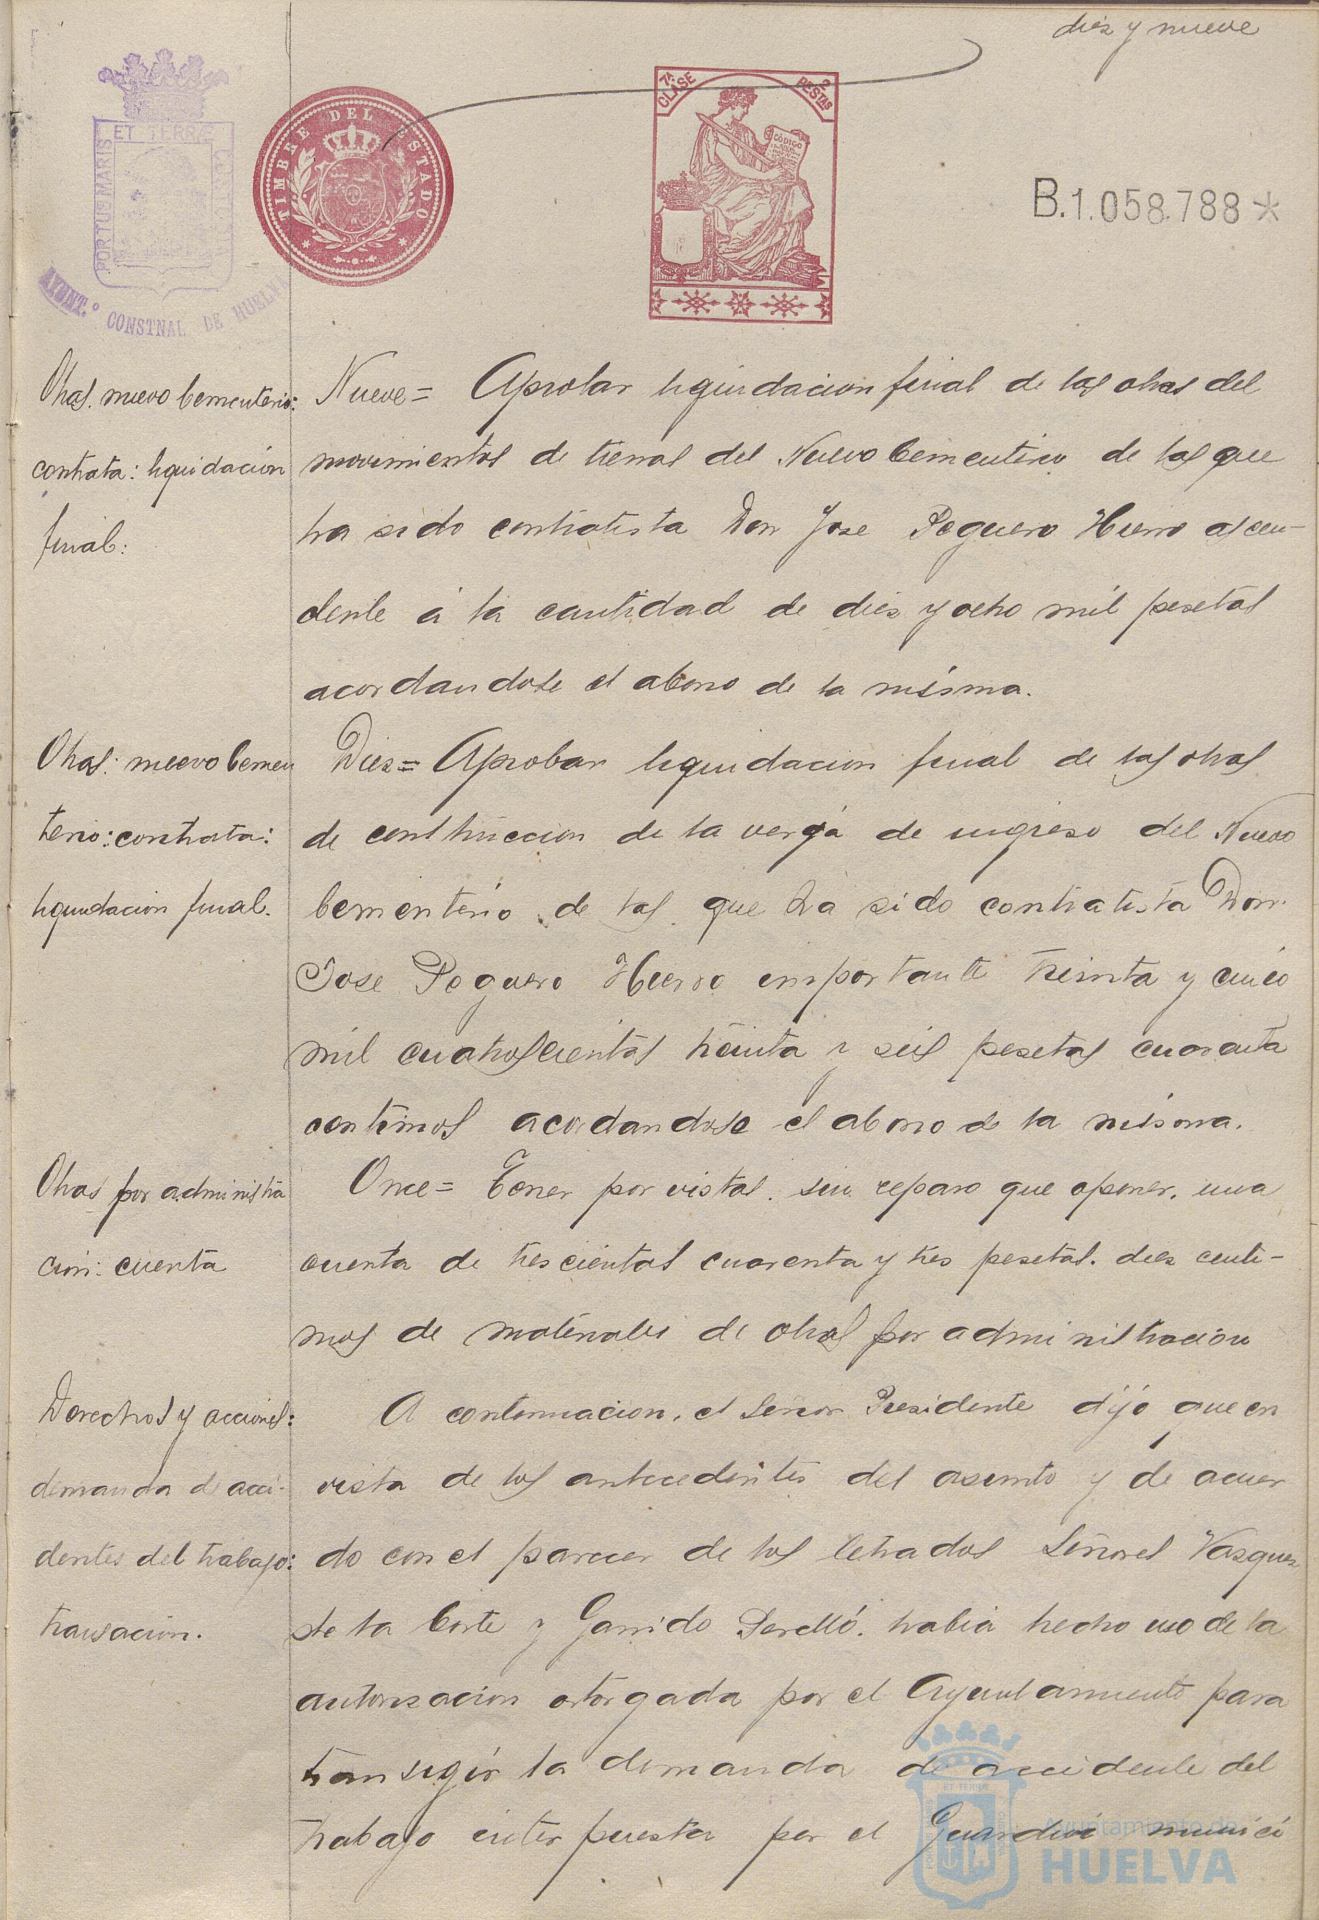 diez y nueve
ET TERRÆ
PORTUS MARIS
CUSTODIA
AYUNT.º CONSTNAL DE HUELVA
TIMBRE DEL ESTADO
7ª CLASE
2 PESTAS
CÓDIGO
B.1.058.788*
Obras. nuevo Cementerio:
contrata: liquidación
final:
Nueve= Aprobar liquidacion final de las obras del
movimientos de tierras del Nuevo Cementerio de las que
ha sido contratista Don Jose Peguero Hierro ascen-
dente á la cantidad de diez y ocho mil pesetas
acordandose el abono de la misma.
Obras: nuevo Cemen
terio: contrata:
liquidacion final.
Diez= Aprobar liquidacion final de las obras
de construccion de la verja de ingreso del Nuevo
Cementerio de las que ha sido contratista Don
Jose Peguero Hierro importante treinta y cinco
mil cuatroscientas treinta y seis pesetas cuarenta
centimos acordandose el abono de la misma.
Obras por administra
cion: cuenta
Once= Tener por vistas. sin reparo que oponer. una
cuenta de trescientas cuarenta y tres pesetas. diez centi-
mos de materiales de obras por administracion
Derechos y acciones:
demanda de acci-
dentes del trabajo:
transacion.
A continuacion, el Señor Presidente dijo que en
vista de los antecedentes del asunto y de acuer
do con el parecer de los letrados Señores Vazquez
de la Corte y Garrido Perelló. habia hecho uso de la
autorizacion otorgada por el Ayuntamiento para
transigir la demanda de accidente del
trabajo interpuesta por el Guardia munici
Ayuntamiento de
HUELVA